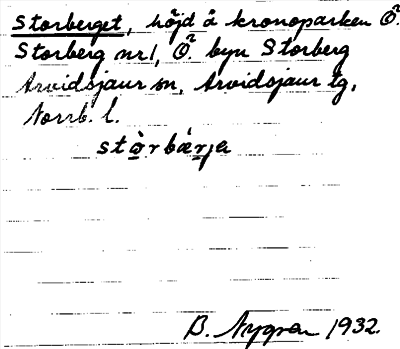 Storberget, höjd å kronoparken Ö.
Storberg nr 1, Ö. byn Storberg
Arvidsjaur sn, Arvidsjaur tg,
Norrb. l.
stòrbárja
B. Nygren 1932.